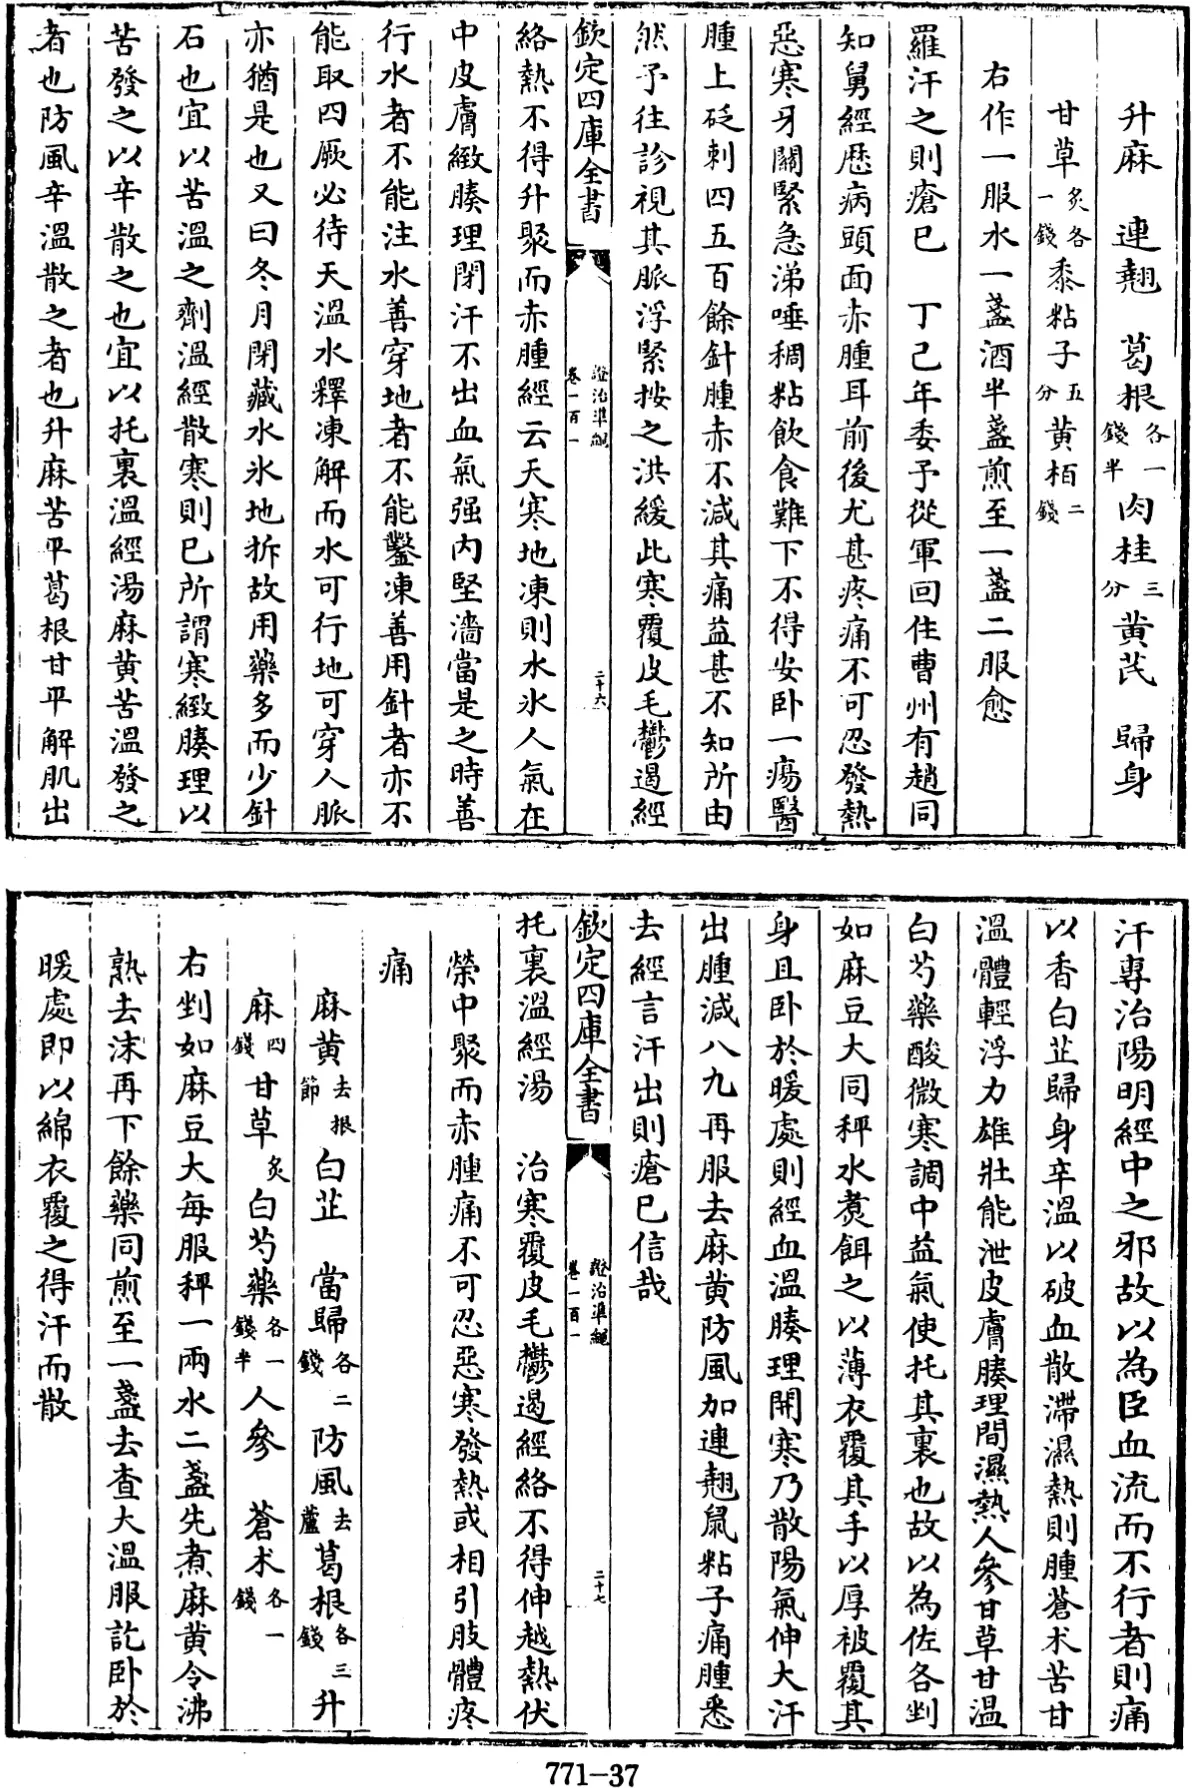 升麻　連翹　葛根各一錢半肉桂三分黄芪　歸身
甘草炙各一錢黍粘子五分黄栢二錢
右作一服水一盞酒半盞煎至一盞二服愈
羅汗之則瘡已　丁己年委予從軍回住曹州有趙同
知舅經歴病頭面赤腫耳前後尤甚疼痛不可忍發熱
惡寒牙關緊急涕唾稠粘飲食難下不得安卧一瘍醫
腫上砭刺四五百餘針腫赤不減其痛益甚不知所由
然予往診視其脈浮緊按之洪緩此寒覆皮毛鬱遏經
欽定四庫全書
證治準繩
卷一百一
二十六
絡熱不得升聚而赤腫經云天寒地凍則水氷人氣在
中皮膚緻腠理閉汗不出血氣强内堅濇當是之時善
行水者不能注水善穿地者不能鑿凍善用針者亦不
能取四厥必待天温水釋凍解而水可行地可穿人脈
亦猶是也又曰冬月閉藏水氷地拆故用藥多而少針
石也宜以苦温之劑温經散寒則已所謂寒緻腠理以
苦發之以辛散之也宜以托裏温經湯麻黄苦温發之
者也防風辛温散之者也升麻苦平葛根甘平解肌出
汗專治陽明經中之邪故以為臣血流而不行者則痛
以香白芷歸身辛温以破血散滯濕熱則腫蒼术苦甘
温體輕浮力雄壯能泄皮膚腠理間濕熱人參甘草甘温
白芍藥酸微寒調中益氣使托其裏也故以為佐各剉
如麻豆大同秤水煑餌之以薄衣覆其手以厚被覆其
身且卧於暖處則經血温腠理開寒乃散陽氣伸大汗
出腫減八九再服去麻黄防風加連翹鼠粘子痛腫悉
去經言汗出則瘡已信哉
欽定四庫全書
證治準繩
卷一百一
二十七
托裏温經湯　治寒覆皮毛鬱遏經絡不得伸越熱伏
榮中聚而赤腫痛不可忍惡寒發熱或相引肢體疼
痛
麻黄去根節白芷　當歸各二錢防風去蘆葛根各三錢升
麻四錢甘草炙白芍藥各一錢半人參　蒼术各一錢
右剉如麻豆大每服秤一兩水二盞先煮麻黄令沸
熟去沫再下餘藥同煎至一盞去查大温服訖卧於
暖處即以綿衣覆之得汗而散
771-37